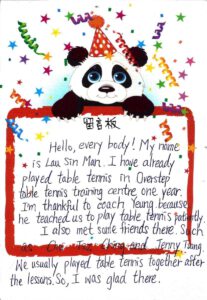 留言板
Hello, every body! My name
is Lau Sin Man. I have already
played table tennis in Overstep
table tennis training centre one year.
I'm thankful to coach Yeung because
he teached us to play table tennis patiently.
I also met some friends there. Such
as and Jenny Tsang.
We usually played table tennis together after
the lessons. So, I was glad there.